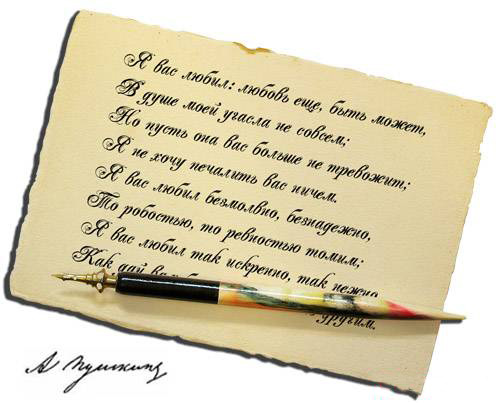 Я вас любил: любовь еще, быть может,
В душе моей угасла не совсем;
Но пусть она вас больше не тревожит;
Я не хочу печалить вас ничем.
Я вас любил безмолвно, безнадежно,
То робостью, то ревностью томим;
Я вас любил так искренно, так нежно,
Как дай другим.
А Пушкинъ